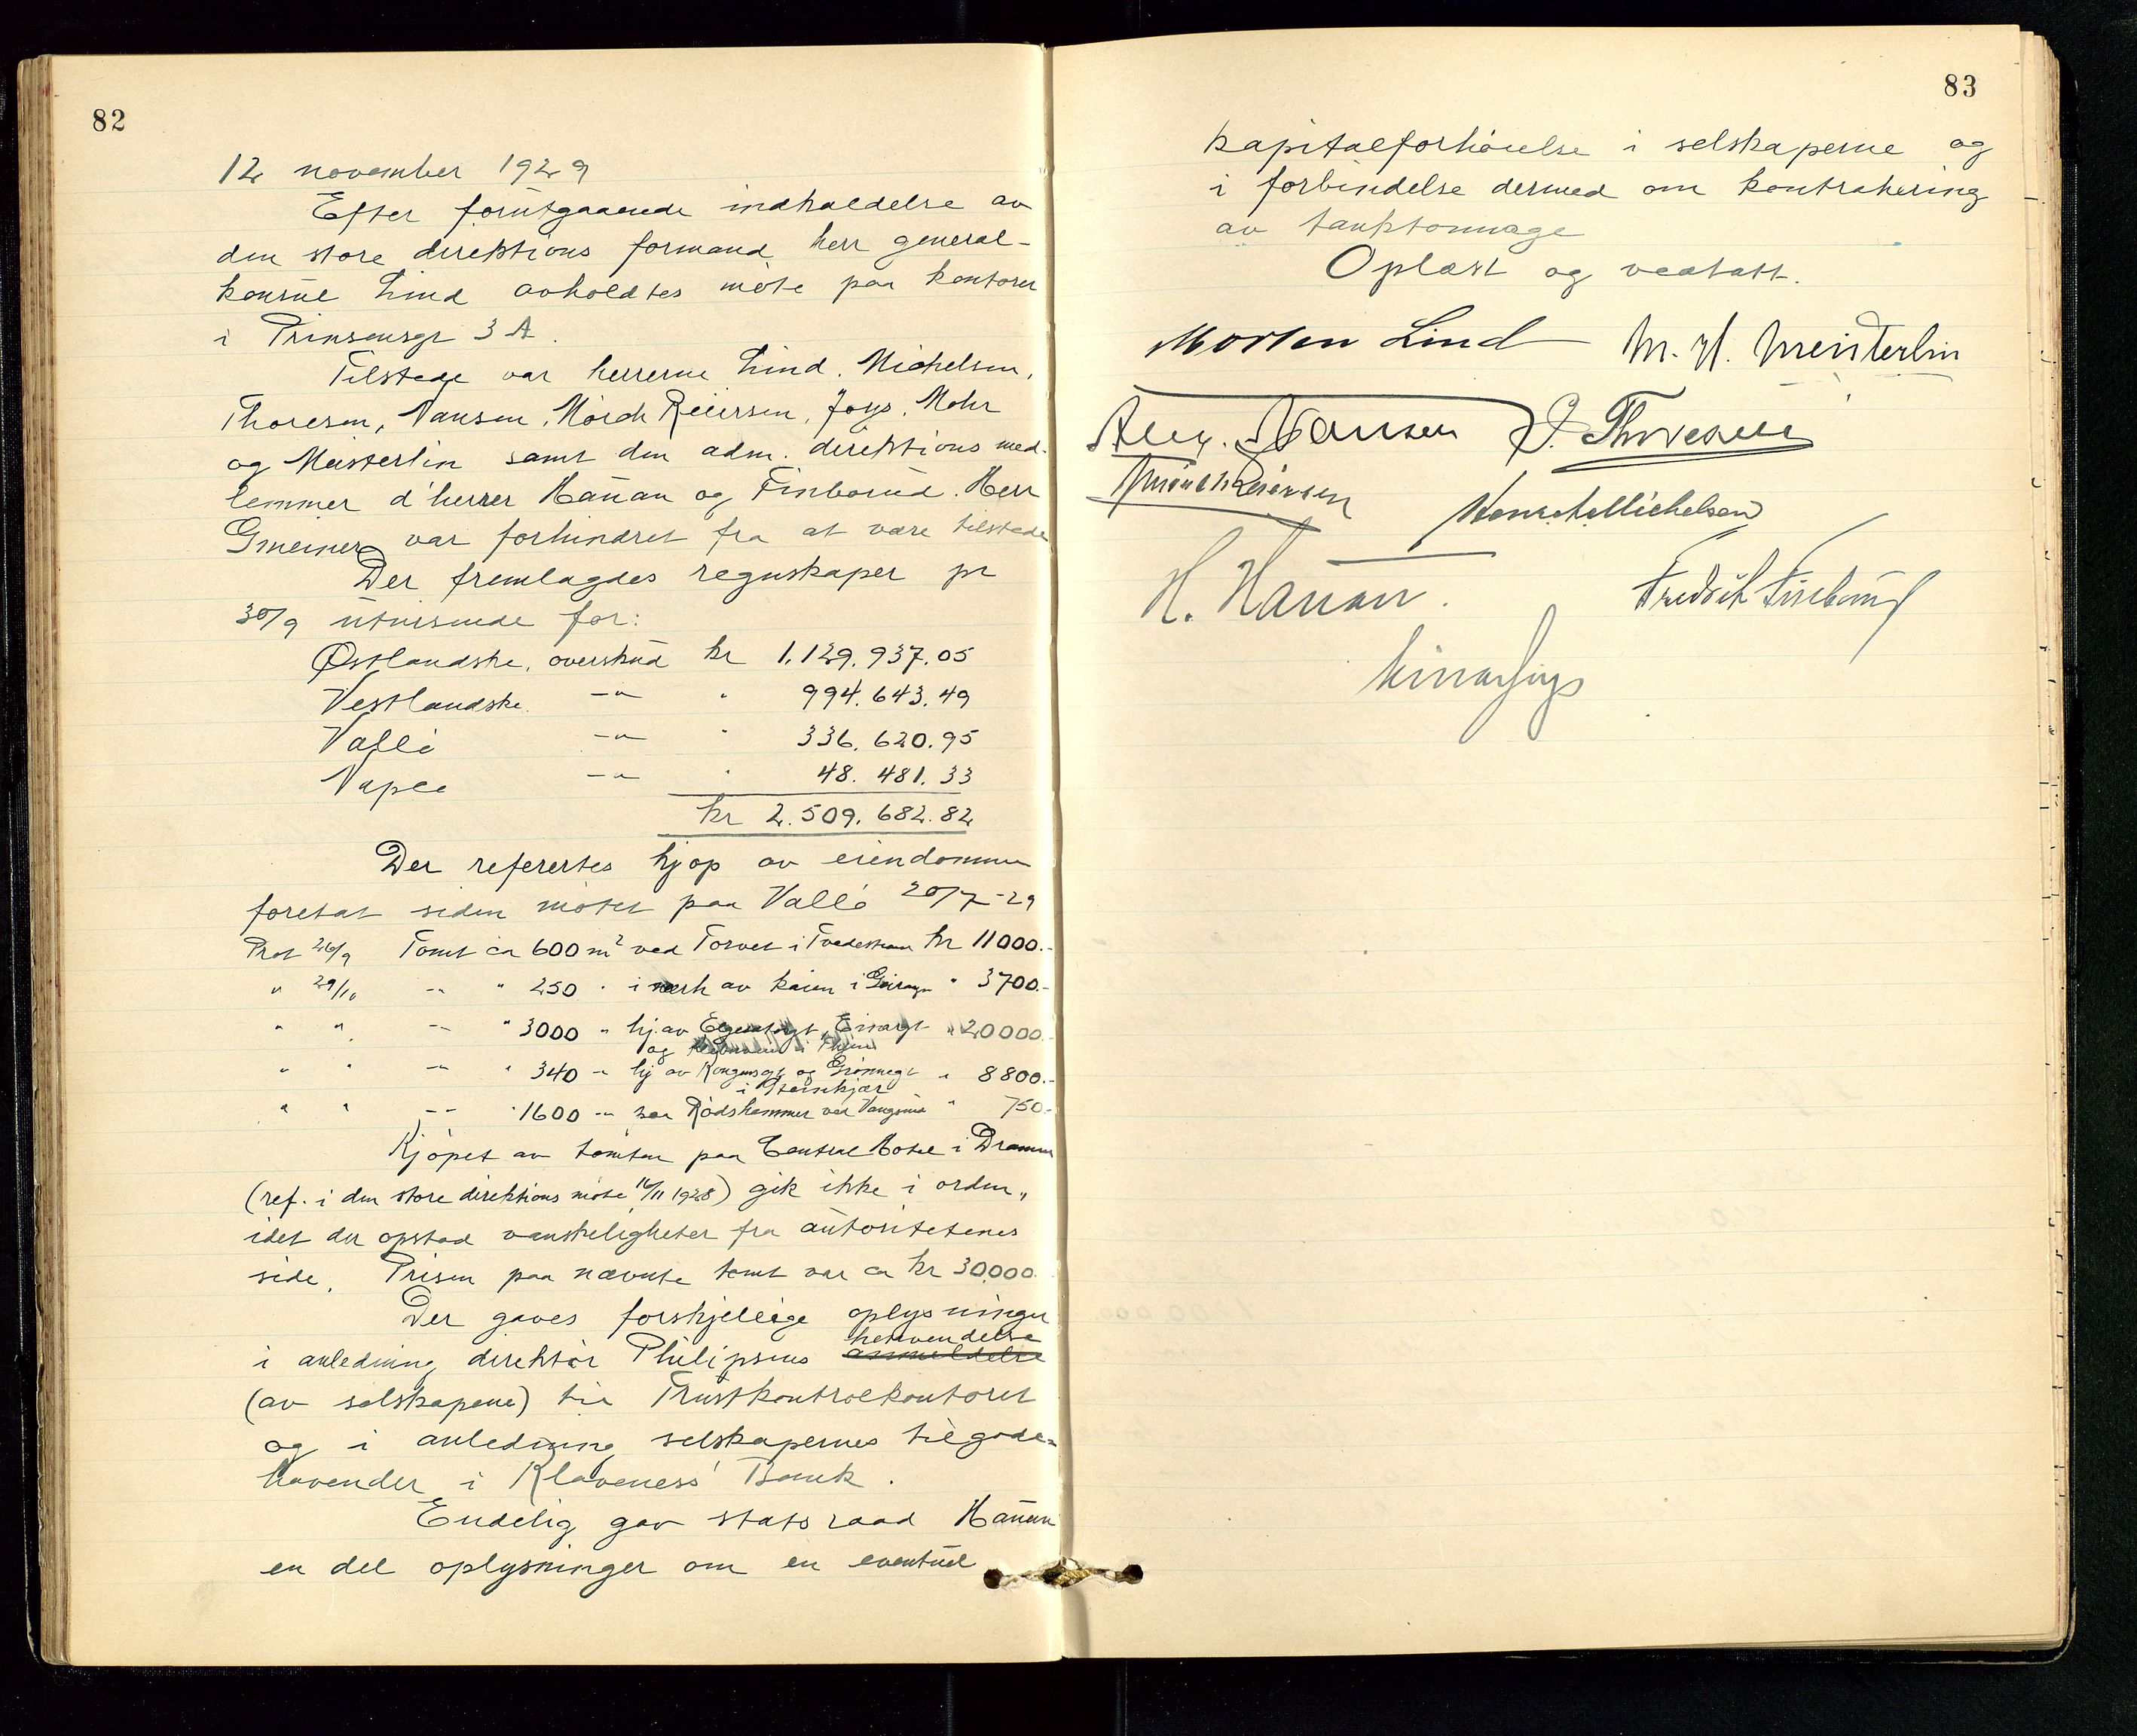 82
12 november 1929
Efter forutgaaende indkaldelse av
den store direktions formand herr general-
konsul Lind avholdtes møte paa kontoret
i Prinsensgt 3 A.
Tilstede var herrerne Lind, Michelsen,
Thoresen, Nansen, Mørch Reiersen, Joys, Mohr
og Meisterlin samt den adm. direktions med-
lemmer d'herrer Hauan og Finborud. Herr
Gmeiner var forhindret fra at være tilstede
Der fremlagdes regnskaper pr
30/9 utvisende for:
Østlandske, overskud kr 1.129.937.05
Vestlandske -"- " 994.643.49
Vallö -"- " 336.620.95
Napco -"- " 48.481.33
kr 2.509.682.82
Der referertes kjøp av eiendommer
foretat siden møtet paa Vallö 20/7-29
Prot 26/9 Tomt ca 600 m2 ved Torvet i Tvedestrand kr 11000.-
" 29/10 -"- " 250 " i nærh av kaien i " 3700.-
" " -"- " 3000 " hj. av "20000.-
og
" " -"- " 340 -" hj av Kongensgt og Grønnegt " 8800.-
i Steinkjær
" " -"- " 1600 -" paa Rødshammer ved Vangsnes " 750.-
Kjøpet av tomten paa Central Hotel i Drammen
(ref. i den store direktions møte 16/11 1928) gik ikke i orden,
idet der opstod vanskeligheter fra autoritetenes
side. Prisen paa nævnte tomt var ca kr 30.000.
Der gaves forskjellige oplysninger
henvendelse
i anledning direktør Philipsens anmeldelse
(av selskapene) til Trustkontrolkontoret
og i anledning selskapernes tilgode-
havender i Klaveness' Bank.
Endelig gav statsraad Hauan
en del oplysninger om en eventuel
83
kapitalforhøielse i selskaperne og
i forbindelse dermed om kontrahering
av tanktonnage
Oplæst og vedtatt.
Morten Lind M. H. Meisterlin
Alex. Nansen J. Thoresen
Mørch Reiersen Michelsen
H. Hauan. Fredrik Finborud
Joys